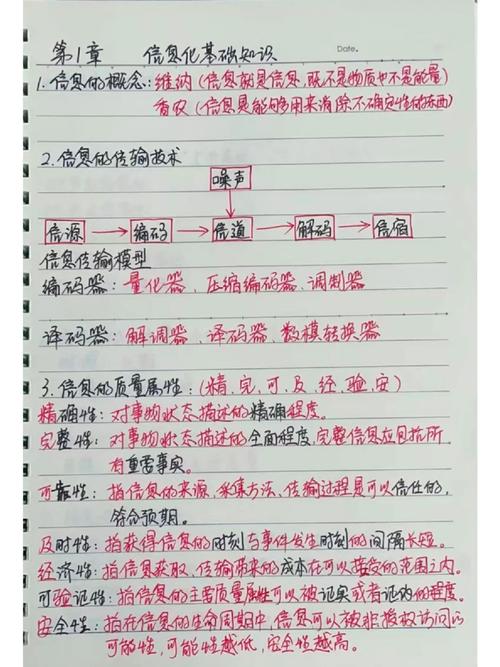 第1章 信息化基础知识
Date.
1.信息的概念:维纳(信息就是信息,既不是物质也不是能量)
香农(信息是能够用来消除不确定性的东西)
2.信息的传输技术
噪声
信源 编码 信道 解码 信宿
信息传输模型
编码器:量化器、压缩编码器、调制器
译码器:解调器、译码器、数模转换器
3.信息的质量属性:(精、完、可、及、经、验、安)
精确性:对事物状态描述的精确程度。
完整性:对事物状态描述的全面程度,完整信息应包括所
有重要事实。
可靠性:指信息的来源,采集方法、传输过程是可以信任的,
符合预期。
及时性:指获得信息的时刻与事件发生时刻的间隔长短。
经济性:指信息获取、传输带来的成本在可以接受的范围之内。
可验证性:指信息的主要质量属性可以被证实或者证伪的程度。
安全性:指在信息的生命周期中,信息可以被非授权访问的
可能性,可能性越低,安全性越高。